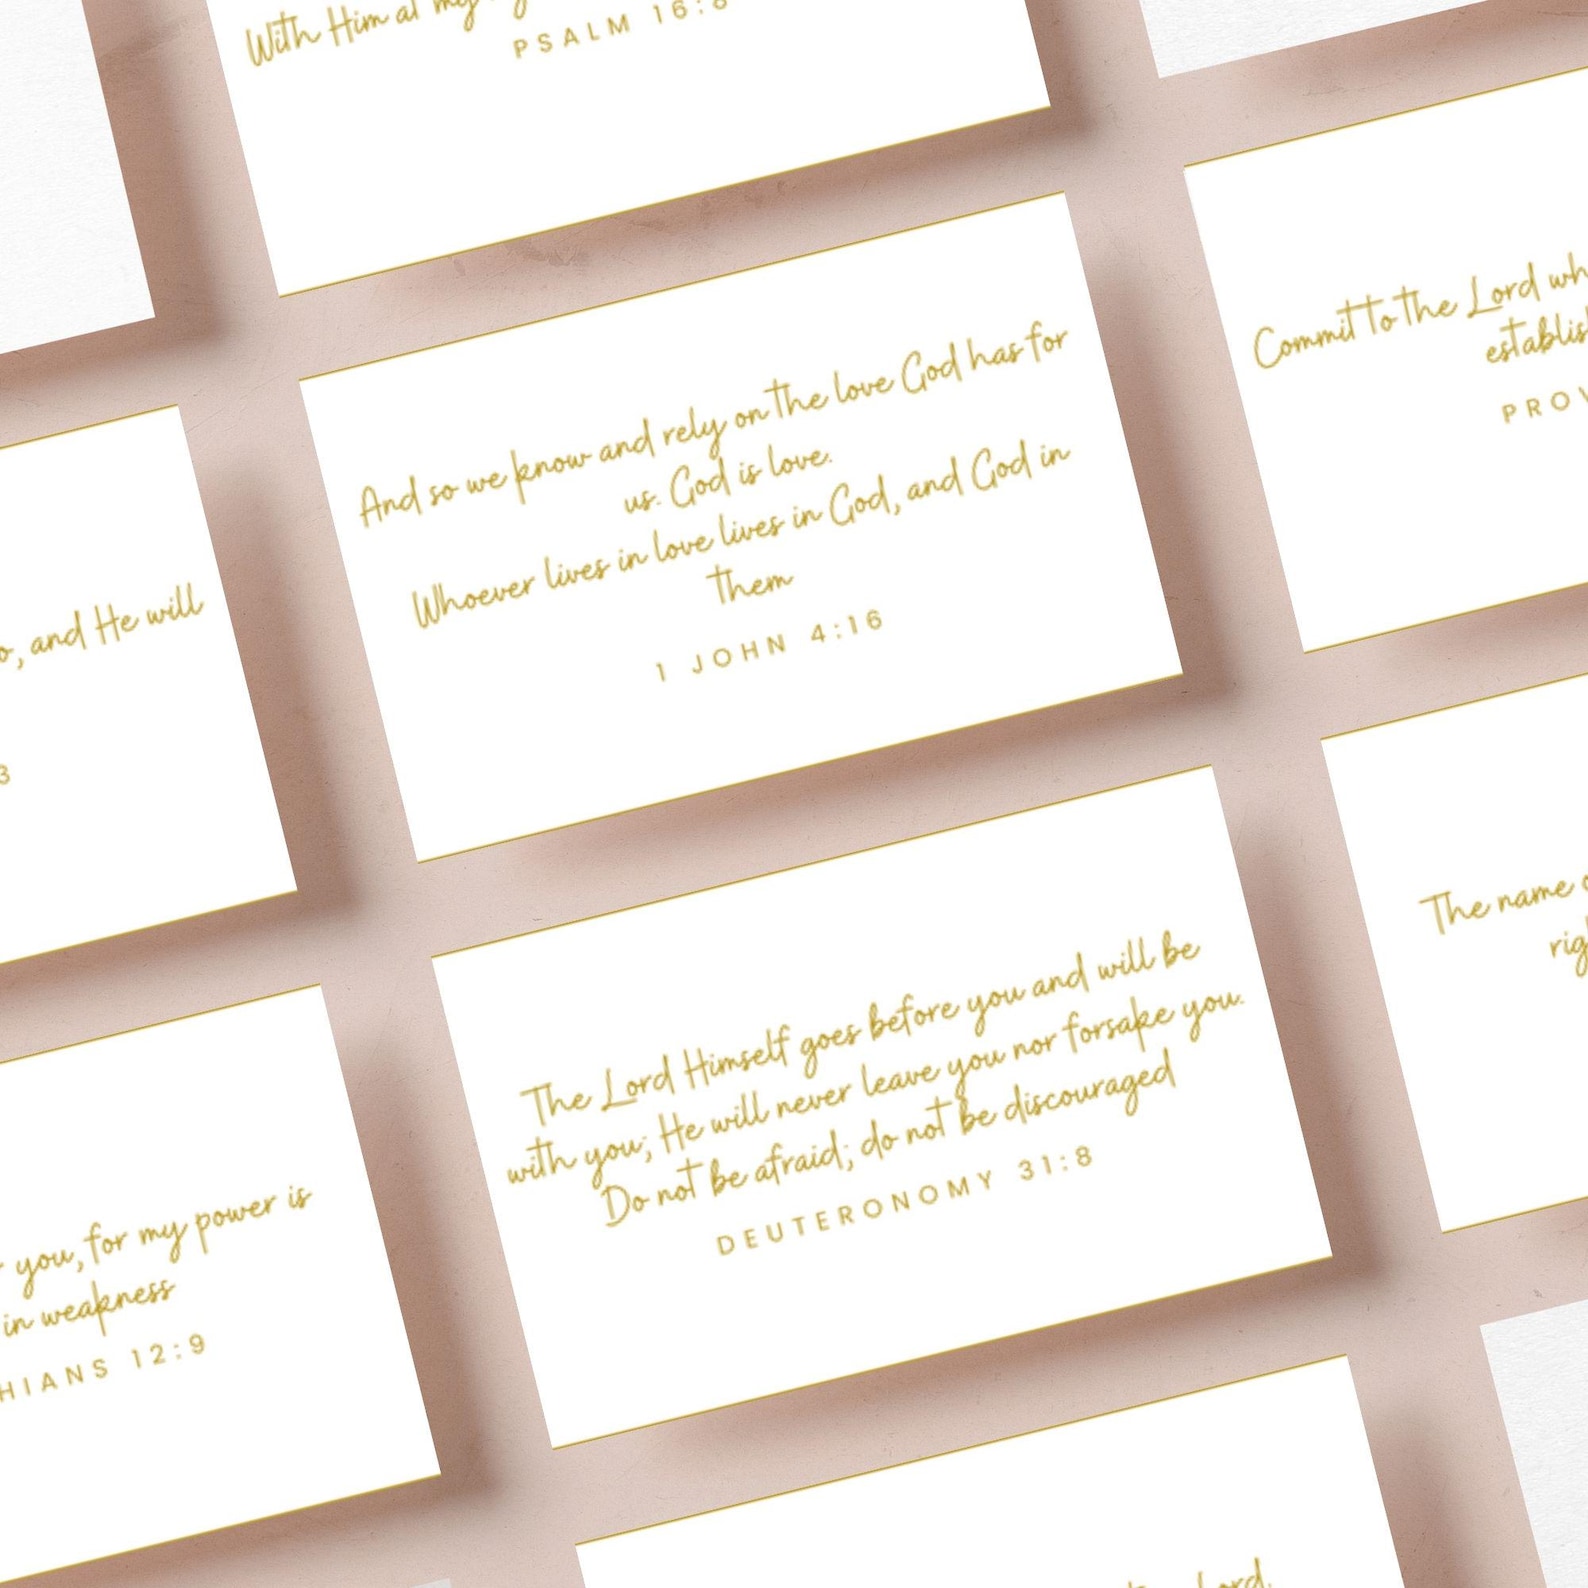 With Him at my
PSALM 16:8
And so we know and rely on the love God has for
us. God is love.
Whoever lives in love lives in God, and God in
them
1 JOHN 4:16
Commit to the Lord
establis
PROV
o, and He will
3
The Lord Himself goes before you and will be
with you; He will never leave you nor forsake you.
Do not be afraid; do not be discouraged
DEUTERONOMY 31:8
The name
rig
you, for my power is
in weakness
HIANS 12:9
Lord,